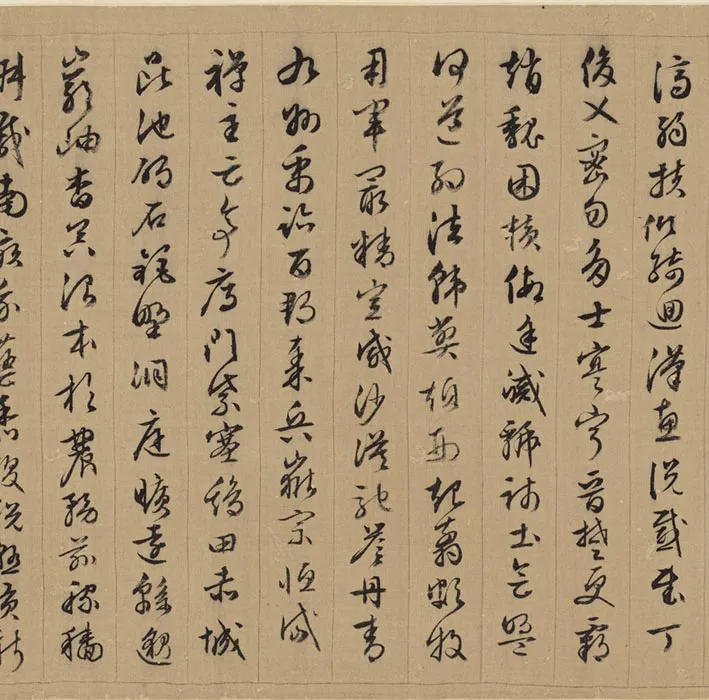 濟弱扶傾綺迴漢惠説感武丁
俊乂密勿多士寔寧晉楚更霸
趙魏困橫假途滅虢踐土會盟
何遵約法韓弊煩刑起翦頗牧
用軍最精宣威沙漠馳譽丹青
九州禹跡百郡秦并嶽宗恒岱
禪主云亭雁門紫塞雞田赤城
昆池碣石鉅野洞庭曠遠緜邈
巖岫杳冥治本於農務茲稼穡
俶載南畝我藝黍稷税熟貢新